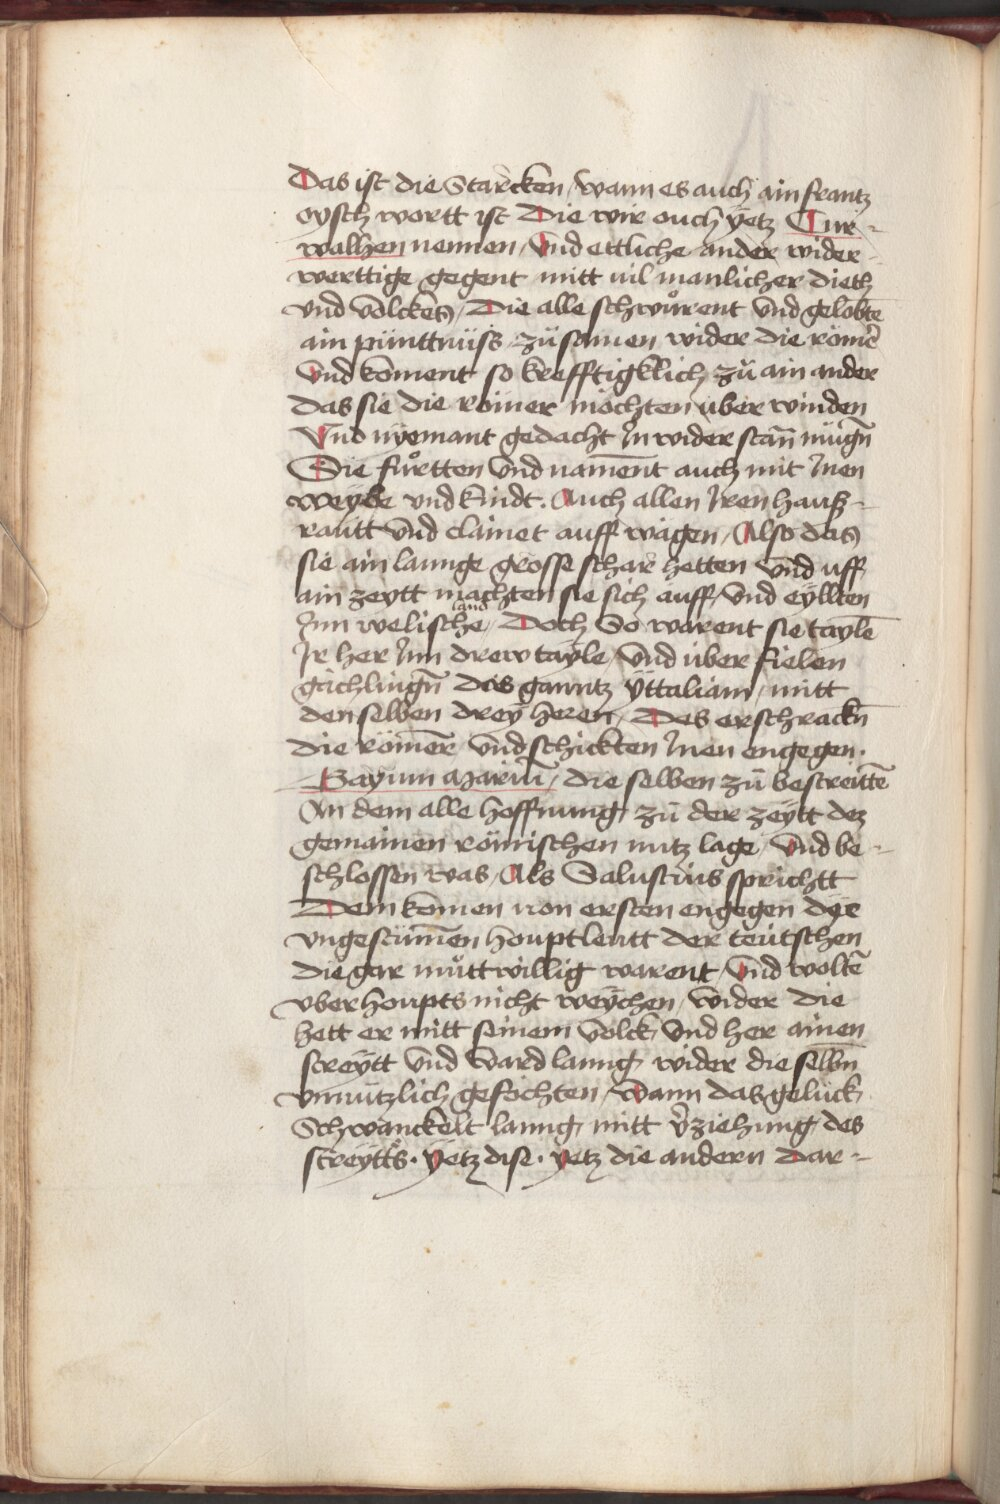 Das ist die Starcken / wann es auch ain frantz
oysch wortt ist Die wir ouch yetz Cur-
walhen nennen / Und ettliche ander wider-
werttige gegent mitt uil manlicher dieth
vnd volckes / Die alle schwůrent vnd gelobtē
ain pünttnüss zů samen wider die römer̄
Vnd koment so krefftigklich zů ain ander
das sie die römer möchten über winden
Vnd nÿemant gedacht Jn wider stan̄ mügn̄
Sie fůrtten vnd namēnt auch mit Jnen
weybe vnd kindt. Auch allen Jren hauß-
rautt vnd clainet auff wägen / Also das
sie ain launge grosse schar hetten vnd uff
ain zeytt machten sie sich auff / vnd eyllten
Jnn welische land / Doch So warent sie taylē
Jr her Jnn drew tayle / vnd über fielen
gächlingn̄ das ganntz ÿttaliam / mitt
den selben dreÿ heren / Des erschrackn̄
die römer / vnd schickten Jnen engegen.
Gayum Mariū / die selben zů bestreittē
An dem alle hoffnung zů der zeÿtt dez
gemainen römischen nutz lage / vnd be-
schlossen was / Als Salustius sprichtt
Dem komen von ersten engegen dÿe
vngestümen houptleutt der teutschen
die gar můttwillig warent / Vnd woltē
vberhoupts nicht weÿchen / wider die
hett er mitt seinem volck vnd her ainen
streÿtt vnd ward lanng wider die selbn̄
vnnützlich gefochten / Wann das gelück
Schwanckelt lanng mitt v̄ziehung des
streÿtts. Ÿetz dise. yetz die andern Dar-